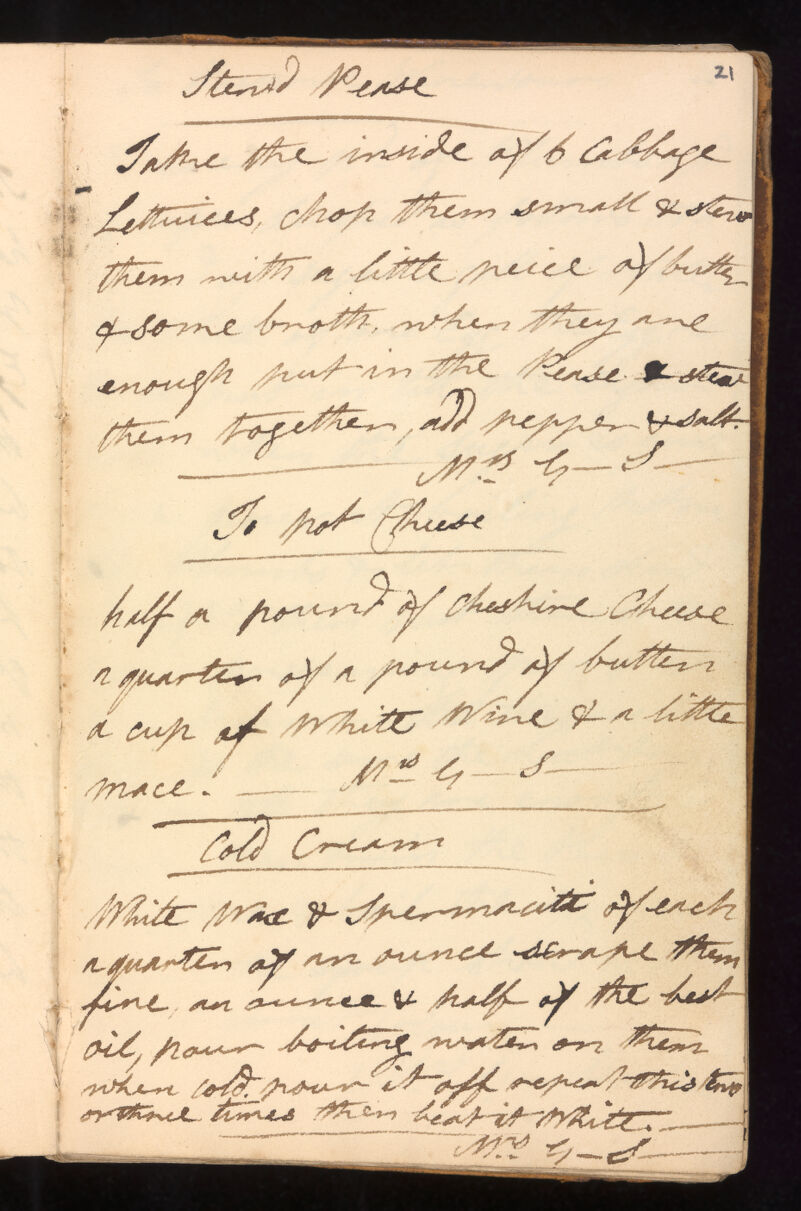 21
Stew'd Pease
Take the inside of 6 Cabbage
Lettuices, chop them small & stew
them with a little peice of butter
& some broth, when they are
enough put in the Pease & stew
them together, add pepper & salt.
Mrs G— S—
To pot Cheese
half a pound of cheshire Cheese
a quarter of a pound of butter
a cup of White Wine & a little
mace. — Mrs G— S—
Cold Cream
White Wax & Spermaciti of each
a quarter of an ounce scrape them
fine, an ounce & half of the best
oil, pour boiling water on them
when cold pour it off repeat this two
or three times then beat it White.—
Mrs G— S—